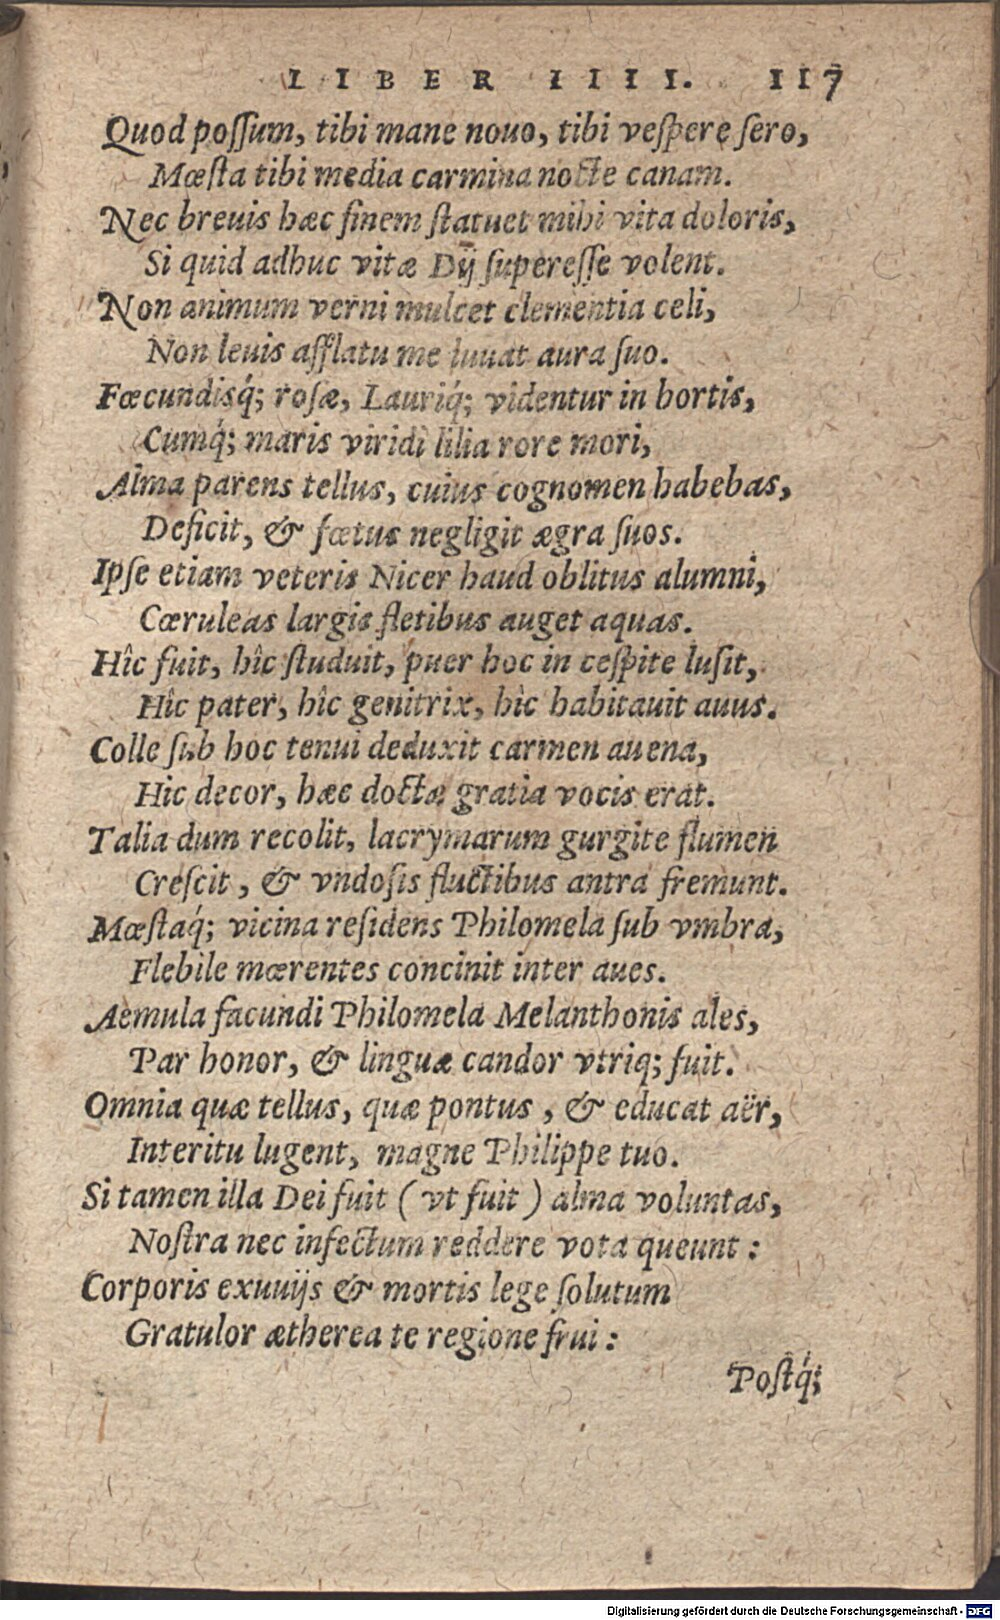 LIBER IIII. 117
Quod poſſum, tibi mane nouo, tibi veſpere ſero,
Mœſta tibi media carmina nocte canam.
Nec breuis hæc finem ſtatuet mihi vita doloris,
Si quid adhuc vitæ Dij ſupereſſe volent.
Non animum verni mulcet clementia celi,
Non leuis afflatu me iuuat aura ſuo.
Fœcundisq́; roſæ, Lauriq́; videntur in hortis,
Cumq́; maris viridi lilia rore mori,
Alma parens tellus, cuius cognomen habebas,
Deficit, & fœtus negligit ægra ſuos.
Ipſe etiam veteris Nicer haud oblitus alumni,
Cœruleas largis fletibus auget aquas.
Hîc fuit, hîc ſtuduit, puer hoc in ceſpite luſit,
Hîc pater, hîc genitrix, hîc habitauit auus.
Colle ſub hoc tenui deduxit carmen auena,
Hic decor, hæc doctæ gratia vocis erat.
Talia dum recolit, lacrymarum gurgite flumen
Creſcit, & vndoſis fluctibus antra fremunt.
Mœſtaq́; vicina reſidens Philomela ſub vmbra,
Flebile mœrentes concinit inter aues.
Aemula facundi Philomela Melanthonis ales,
Par honor, & linguæ candor vtriq; fuit.
Omnia quæ tellus, quæ pontus, & educat aër,
Interitu lugent, magne Philippe tuo.
Si tamen illa Dei fuit (vt fuit) alma voluntas,
Noſtra nec infectum reddere vota queunt:
Corporis exuuijs & mortis lege ſolutum
Gratulor ætherea te regione frui:
Poſtq́;
Digitalisierung gefördert durch die Deutsche Forschungsgemeinschaft - DFG